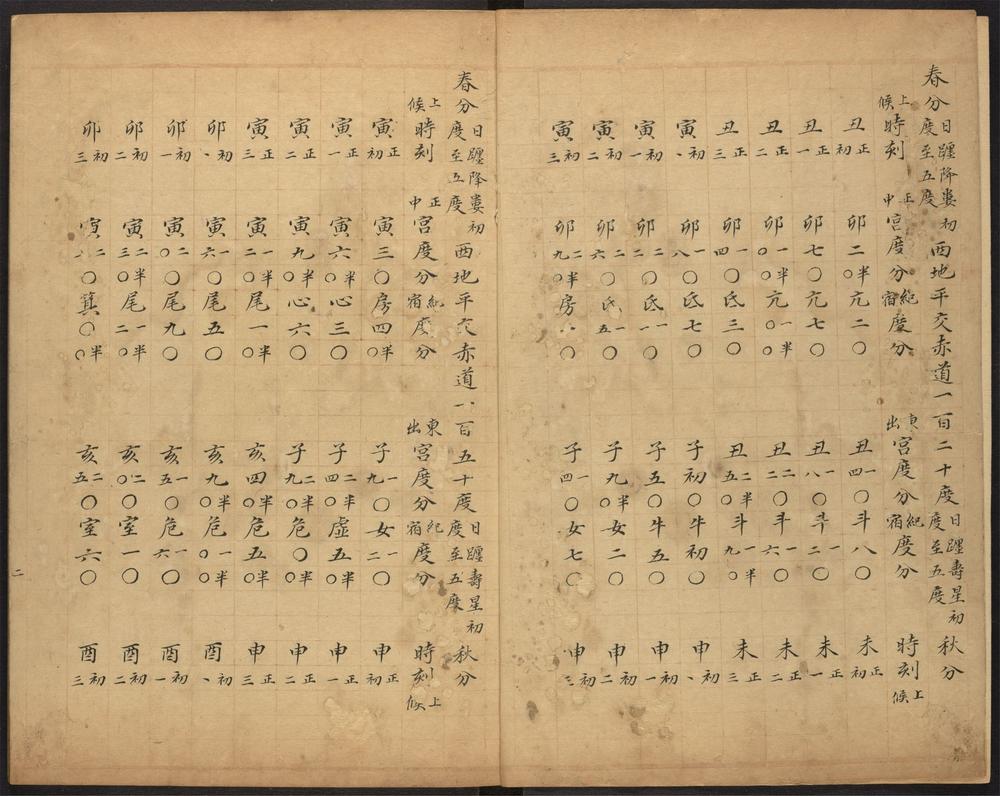 春分日躔降婁初度至五度西地平交赤道一百二十度日躔壽星初度至五度秋分
上候時刻正中宮度分紀宿度分東出宮度分紀宿度分時刻上候
丑正初卯二半〇亢二〇丑一四〇斗八〇未正初
丑正一卯七〇亢七〇丑一八〇斗一二〇未正一
丑正二卯一〇半〇亢一〇半〇丑二二〇斗一六〇未正二
丑正三卯一四〇氐三〇丑二五半〇斗一九半〇未正三
寅初、卯一八〇氐七〇子初〇牛初〇申初、
寅初一卯二二〇氐一一〇子五〇牛五〇申初一
寅初二卯二六〇氐一五〇子九半〇女二〇申初二
寅初三卯二九半〇房、〇子一四〇女七〇申初三
春分日躔降婁初度至五度西地平交赤道一百五十度日躔壽星初度至五度秋分
上候時刻正中宮度分紀宿度分東出宮度分紀宿度分時刻上候
寅正初寅三〇房四半〇子一九〇女一二〇申正初
寅正一寅六半〇心三〇子二四半〇虛五半〇申正一
寅正二寅九半〇心六〇子二九半〇危〇〇申正二
寅正三寅一二半〇尾一半〇亥四半〇危五半〇申正三
卯初、寅一六半〇尾五〇亥九半〇危一〇半〇酉初、
卯初一寅二〇〇尾九〇亥一五〇危一六〇酉初一
卯初二寅二三半〇尾一二半〇亥二〇〇室一〇酉初二
卯初三寅二〇箕〇半〇亥二五〇室六〇酉初三
二